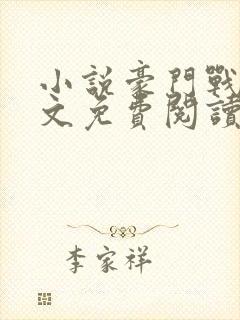 小說豪門戰
文免費閱讀
李家祥